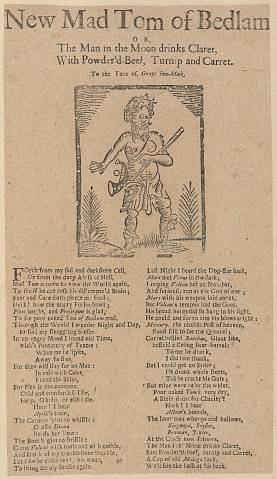 New Mad Tom of Bedlam
OR,
The Man in the Moon drinks Claret,
With Powder'd-Beef, Turnip and Carret.
To the Tune of, Grays Inn-Mask.
FOrth from my sad and darksome Cell,
Or from the deep Abyss of Hell,
Mad Tom is come to view the World again,
To see if he can ease his distemper'd Brain;
Fear and Care doth pierce my Soul;
Hark! how the angry Furies howl;
Pluto laughs, and Proserpine is glad,
To see poor naked Tom of Bedlam mad.
Through the World I wander Night and Day,
to find my straggling Senses.
In an angry Mood I found old Time,
with's Pentarchy of Tenses:
When me he spies,
Away he flies,
For time will stay for no Man:
In vain with Cries,
I rend the Skies,
For Pity is not common.
Cold and comfortless I lie,
Help, O help, or else I die.
Hark! I hear
Apollo's Team,
The Carman 'gins to whistle;
Chaste Diana
Bends her Bow:
The Boar begins to bristle:
Come Vulcan with tools and with tackle,
And knock off my troublesome shackle,
Let Charles make rest, his wain,
To bring my Senses again.
Last Night I heard the Dog-star bark,
Mars met Venus in the dark;
Limping Vulcan het an Iron bar,
And furiously ran at the God of war;
Mars with his weapon laid about,
But Vulcan's temples had the Gout,
His broad horns did so hang in his sight,
He could not see to aim his blows aright:
Mercury, the nimble Post of heaven,
stood still to see the Quarrel;
Gorrel-bellied Bacchus, Giant like,
bestrid a Strong-Beer-barrel:
To me he drank,
I did him thank,
But I could get no Cyder;
He drank whole Butts,
Till he crackt his Guts;
But mine were ne'er the wider.
Poor naked Tom is very dry,
A little drink for charity:
Hark! I hear
Acteon's hounds,
The huntsman whoop and hallows,
Ringwood, Royster,
Bowman, Jowler,
At the Chase now follows.
The Man i'th' Moon drinks Claret,
Eats Powder'd-beef, turnip and Carret,
A Cup of old Malaga Sack,
We'll fire the bush at his back.